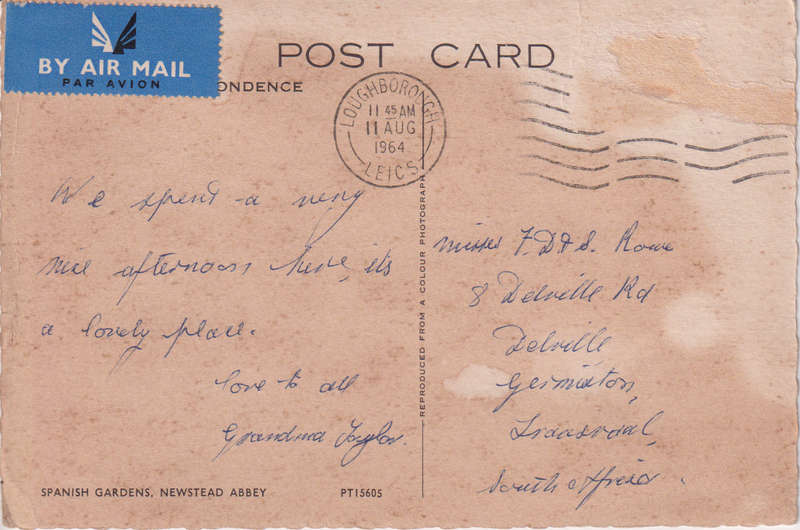 BY AIR MAIL
PAR AVION
POST CARD
ONDENCE
LOUGHBOROUGH
11 45 AM
11 AUG
1964
LEICS
We spent a very
nice afternoon here, its
a lovely place.
love to all
Grandma Taylor.
REPRODUCED FROM A COLOUR PHOTOGRAPH
Misses F. D & S. Rowe
8 Delville Rd
Delville
Germiston,
Transvaal,
South Africa.
SPANISH GARDENS, NEWSTEAD ABBEY
PT15605